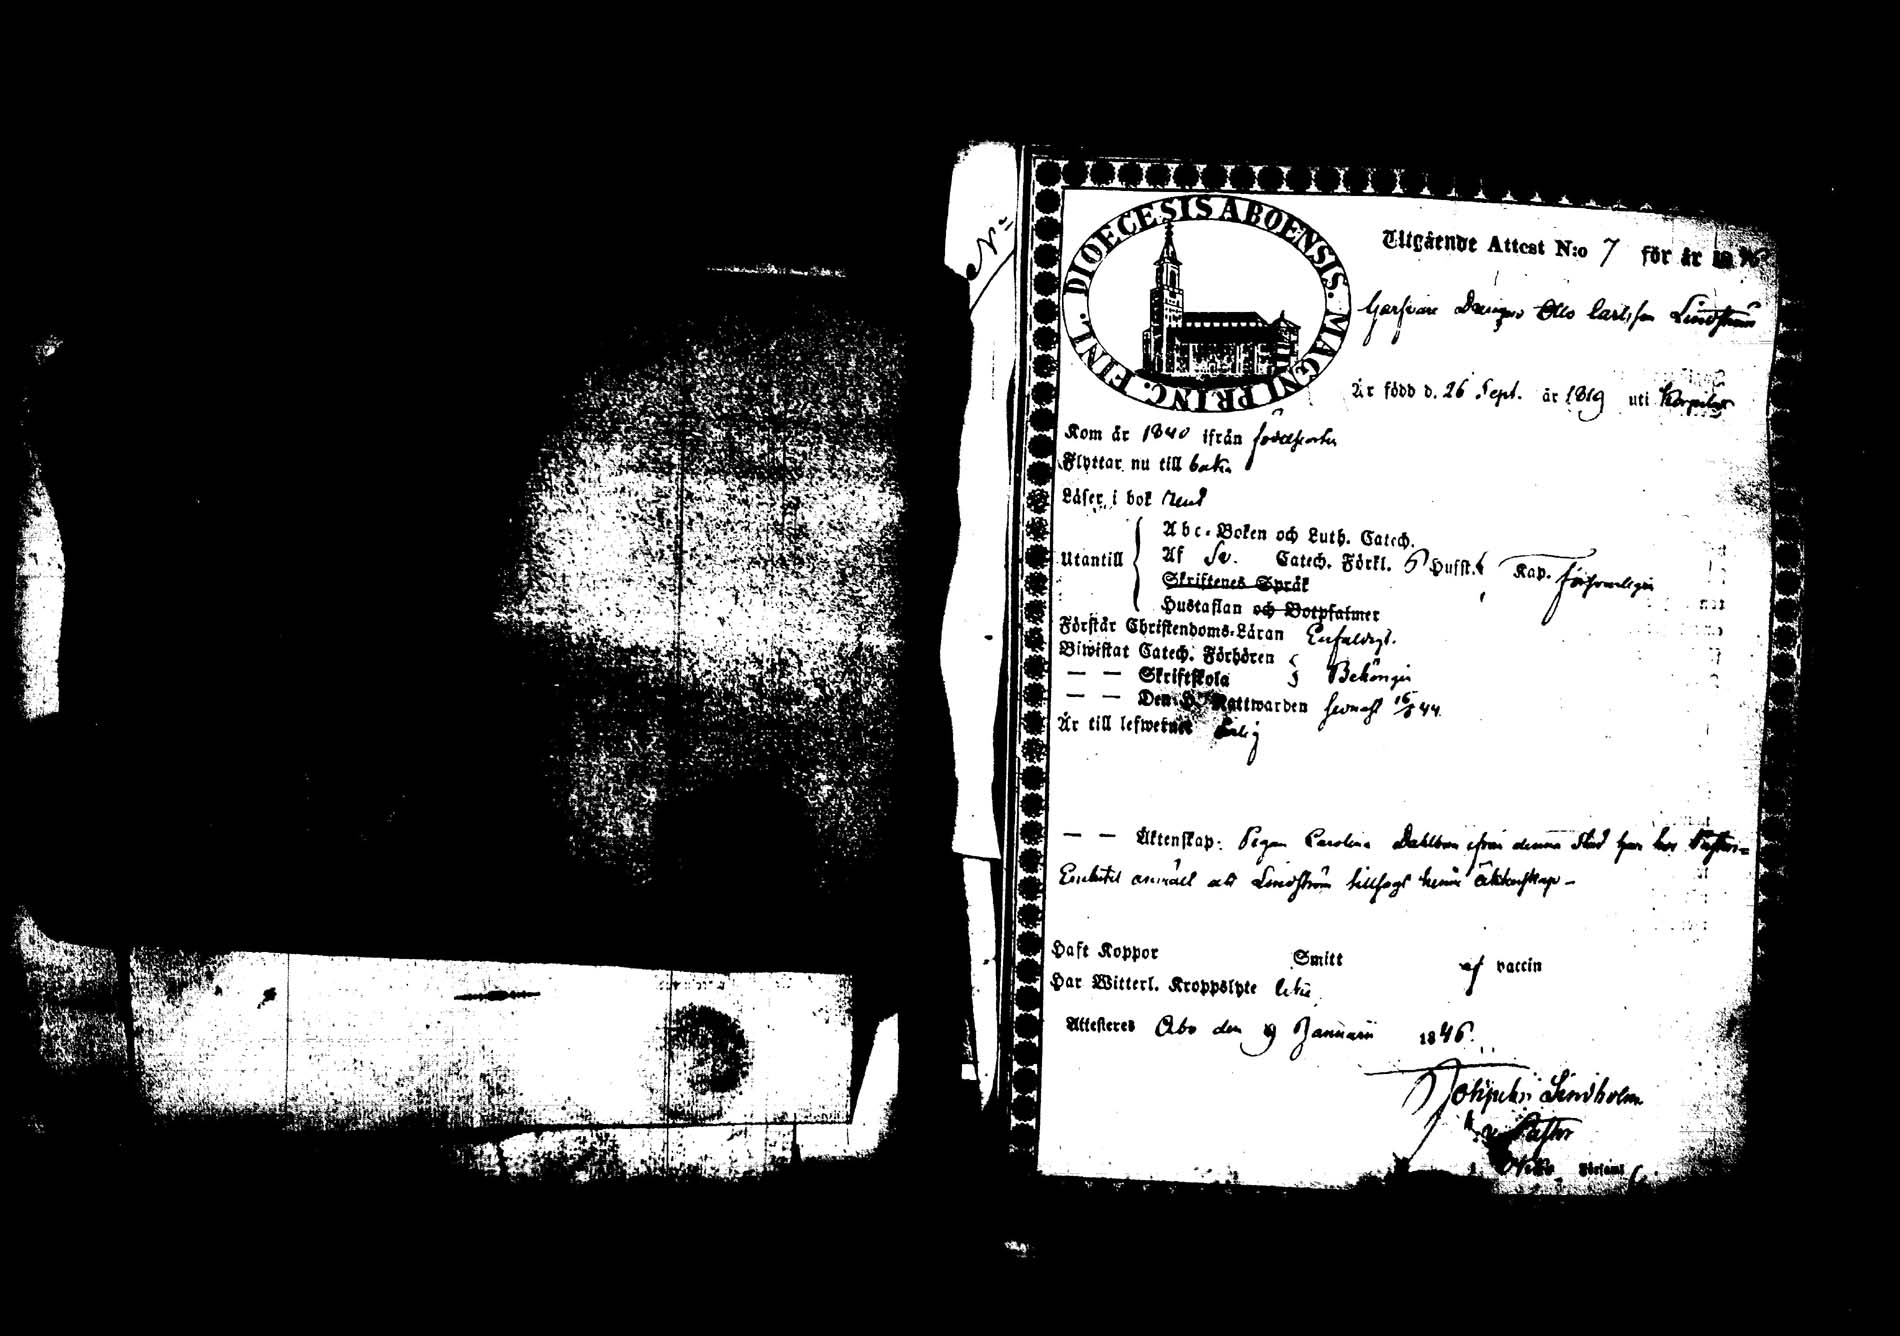 Nº
DIOECESIS ABOENSIS. MAGNI PRINC. FINL.
Utgående Attest N:o 7 för år 1846
Garfvare Otto Carlsson Lindström
Är född d. 26 Sept. år 1819 uti Korpilax
Kom år 1840 ifrån födelseorten
Flyttar nu till
Läser i bok rent
Abc-Boken och Luth. Catech.
Utantill Af Sv. Catech. Förkl. 6 Hufst. Kap. försvarligen
Skriftenes Språk
Hustaflan och Botpsalmer
Förstår Christendoms-Läran Enfaldigt.
Biwistat Catech. Förhören
— — Skriftskola Behörigen
— — Den H. Nattwarden senast 16/8 44.
Är till lefwernet
— — Äktenskap: Pigan Carolina Dahlbom ifrån denna stad har hos Pastors=
Embetet anmält att Lindström tillsagt henne äktenskap –
Haft Koppor Smitt af vaccin
Har Witterl. Kroppslyte
Attesteres Åbo den 9 Januarii 1846.
Lindholm
Pastor
i Församl